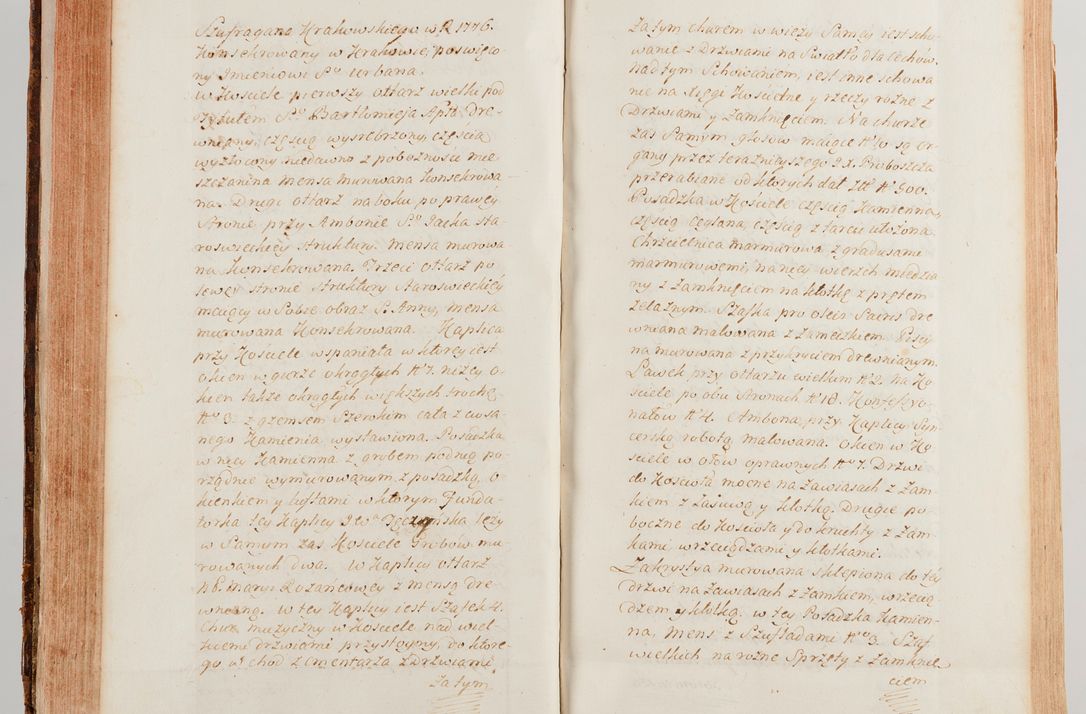 Szufragana Krakowskiego w R 1776.
Konsekrowany w Krakowie, poswięco-
ny Imieniowi Sgo Urbana.
W Kosciele pierwszy ołtarz wielki pod
Tytułem Sgo Bartłomieja Apła Dre-
wniany, częscią wysrebrzony, częscią
wyzłocony niedawno z poboznosci mie-
szczanina mensa murowana konsekrowa-
na. Drugi ołtarz na boku po prawey
Stronie przy Ambonie Sgo Jacka sta-
roswieckiey struktury. mensa murowa
na konsekrowana. Trzeci ołtarz po
lewey stronie struktury Staroswieckiey
maiący w Sobie obraz S. Anny, mensa
murowana Konsekrowana. Kaplica
przy Kosciele wspaniała w ktorey iest
okien w gurze okrągłych No 7. nizey o-
kien takze okrągłych większych trochę
No 3. z gzemsem Szerokim cała z ciosa-
nego Kamienia wystawiona. Posadzka
w niey Kamienna z grobem podnią po-
rządnie wymurowanym z posadzką, o-
kienkiem y lustami w ktorym Funda-
torka tey Kaplicy Tęczynska lezy
w Samym zas Kosciele Grobow mu-
rowanych dwa. w Kaplicy ołtarz
NB. Maryi Rozańcowey z mensą dre-
wnianą. w tey Kaplicy iest Szafek 4.
Chur muzyczny w Kosciele nad wiel-
kiemi drzwiami przystoyny, do ktore-
go w chod z cmentarza z drzwiami
Za tym
Za tym churem w wiezy Samey iest scho-
wanie z Drzwiami na Swiatło dla Cechow.
Nad tym Schowaniem, iest inne schowa
nie na Xsięgi Koscielne y rzeczy rozne z
Drzwiami y Zamknięciem. Na churze
zas Samym głosow maiące No 10 są or-
gany przez teraznieyszego JX. Proboszcza
przerabiane od ktorych dał Złł No 900.
Posadzka w Kosciele częscią Kamienna,
częscią Ceglana, częscią z tarcic ułozona
Chrzcielnica marmurowa z gradusami
marmurowemi, na niey wierzch miedzia
ny z Zamknięciem na kłotkę z prętem
zelaznym. Szafka pro oleis Sacris dre
wniana malowana z Zameczkiem. Piscy
na murowana z przykryciem drewnianym.
Ławek przy ołtarzu wielkim No 2. Na Ko
sciele po obu Stronach No 18. Konfessyo-
nałow No 4. Ambona przy Kaplicy Sny-
cerską robotą malowana. Okien w Ko
sciele w ołow oprawnych No 7. Drzwi
do Koscioła mocne na Zawiasach z Zam-
kiem z Zasuwą y kłotką. Drugie po-
boczne do Koscioła y do kruchty z Zam-
kami wrzeciądzami y kłotkami.
Zakrystya murowana sklepiona do tey
drzwi na Zawiasach z Zamkiem, wrzecią-
dzem y kłotką. w tey Posadzka Kamien-
na, Mens z Szufladami No 3. Szaf
wielkich na rozne Sprzęty z Zamknię-
ciem